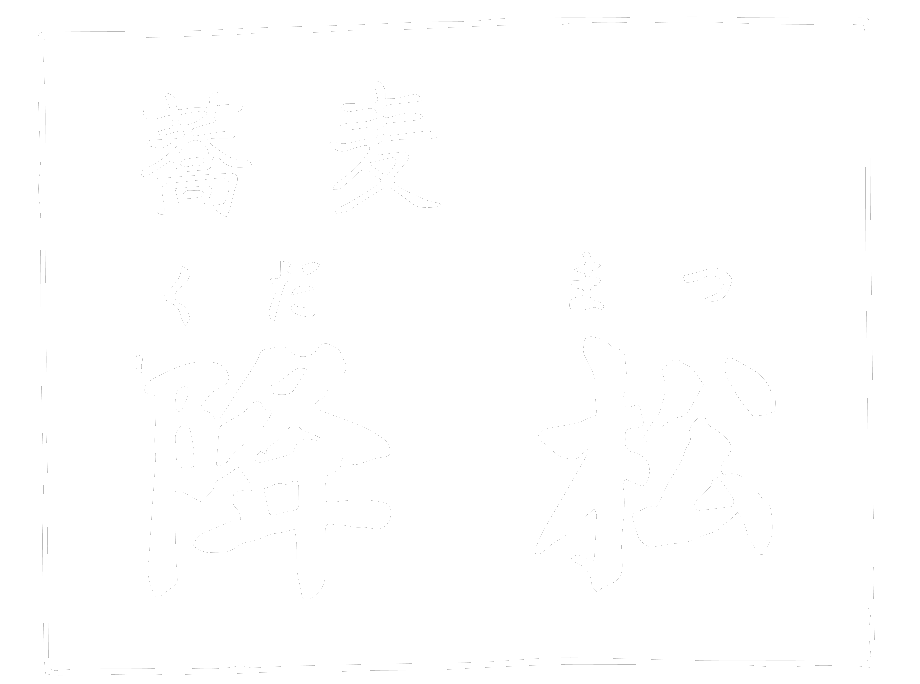 蕎麦
くだまつ
降松